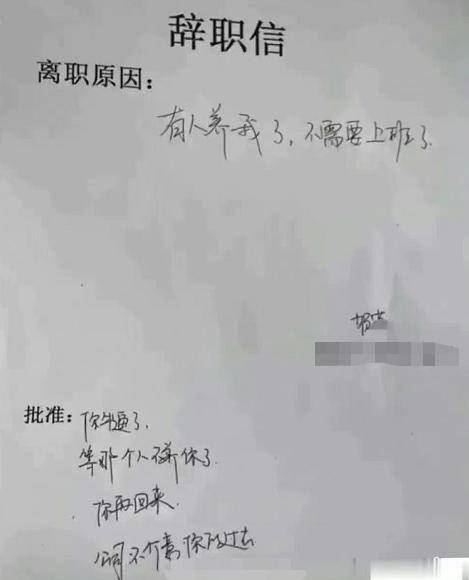 辞职信
离职原因：
有人养我了，不需要上班了.
批准：你牛逼了.
等那个人不养你了.
你再回来.
公司不介意你的过去